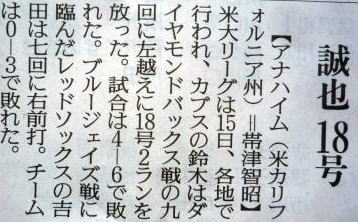 誠也18号
【アナハイム（米カリフ
ォルニア州）＝帯津智昭】
米大リーグは15日、各地で
行われ、カブスの鈴木はダ
イヤモンドバックス戦の九
回に左越えに18号2ランを
放った。試合は4―6で敗
れた。ブルージェイズ戦に
臨んだレッドソックスの吉
田は七回に右前打。チーム
は0―3で敗れた。